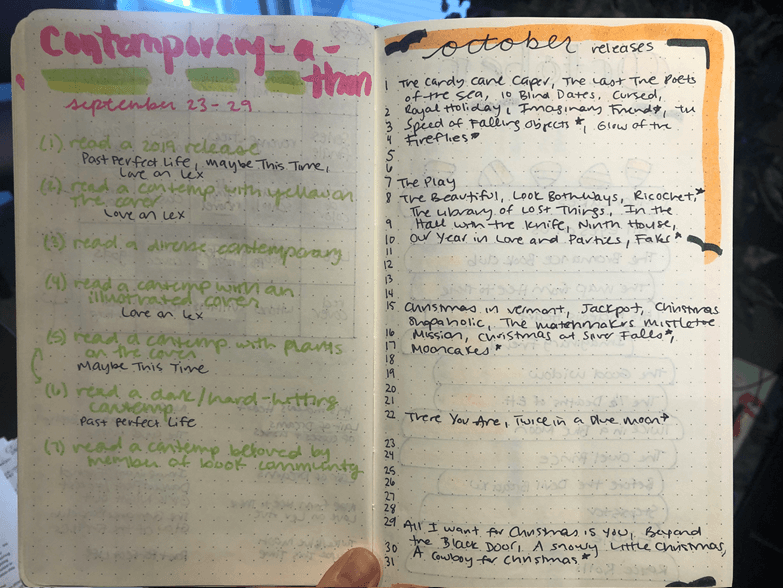 Contemporary-a-
thon
september 23-29
(1) read a 2019 release
Past Perfect Life, Maybe This Time,
Love on Lex
(2) read a contemp with yellow on
the cover
Love on Lex
(3) read a diverse contemporary
(4) read a contemp with an
illustrated cover
Love on Lex
(5) read a contemp with plants
on the cover
Maybe This Time
(6) read a dark/hard-hitting
contemp
Past Perfect Life
(7) read a contemp beloved by
member of book community
october releases
1 The Candy Cane Caper, The Last The Poets
of the Sea, 10 Blind Dates, Cursed,
2 Royal Holiday, Imaginary Friend*, the
3 Speed of Falling Objects*, Glow of the
4 Fireflies*
5
6
7 The Play
8 The Beautiful, Look Both Ways, Ricochet,*
The Library of Lost Things, In the
9 Hall with the Knife, Ninth House,
10 Our Year in Love and Parties, Fake*
11
12
13
14
15 Christmas in Vermont, Jackpot, Christmas
Shopaholic, The Matchmakers Mistletoe
16 Mission, Christmas at Silver Falls*,
17 Mooncakes*
18
19
20
21
22 There You Are, Twice in a Blue Moon*
23
24
25
26
27
28
29 All I Want for Christmas is You, Beyond
the Black Door, A Snowy Little Christmas,
30 A Cowboy for Christmas*
31